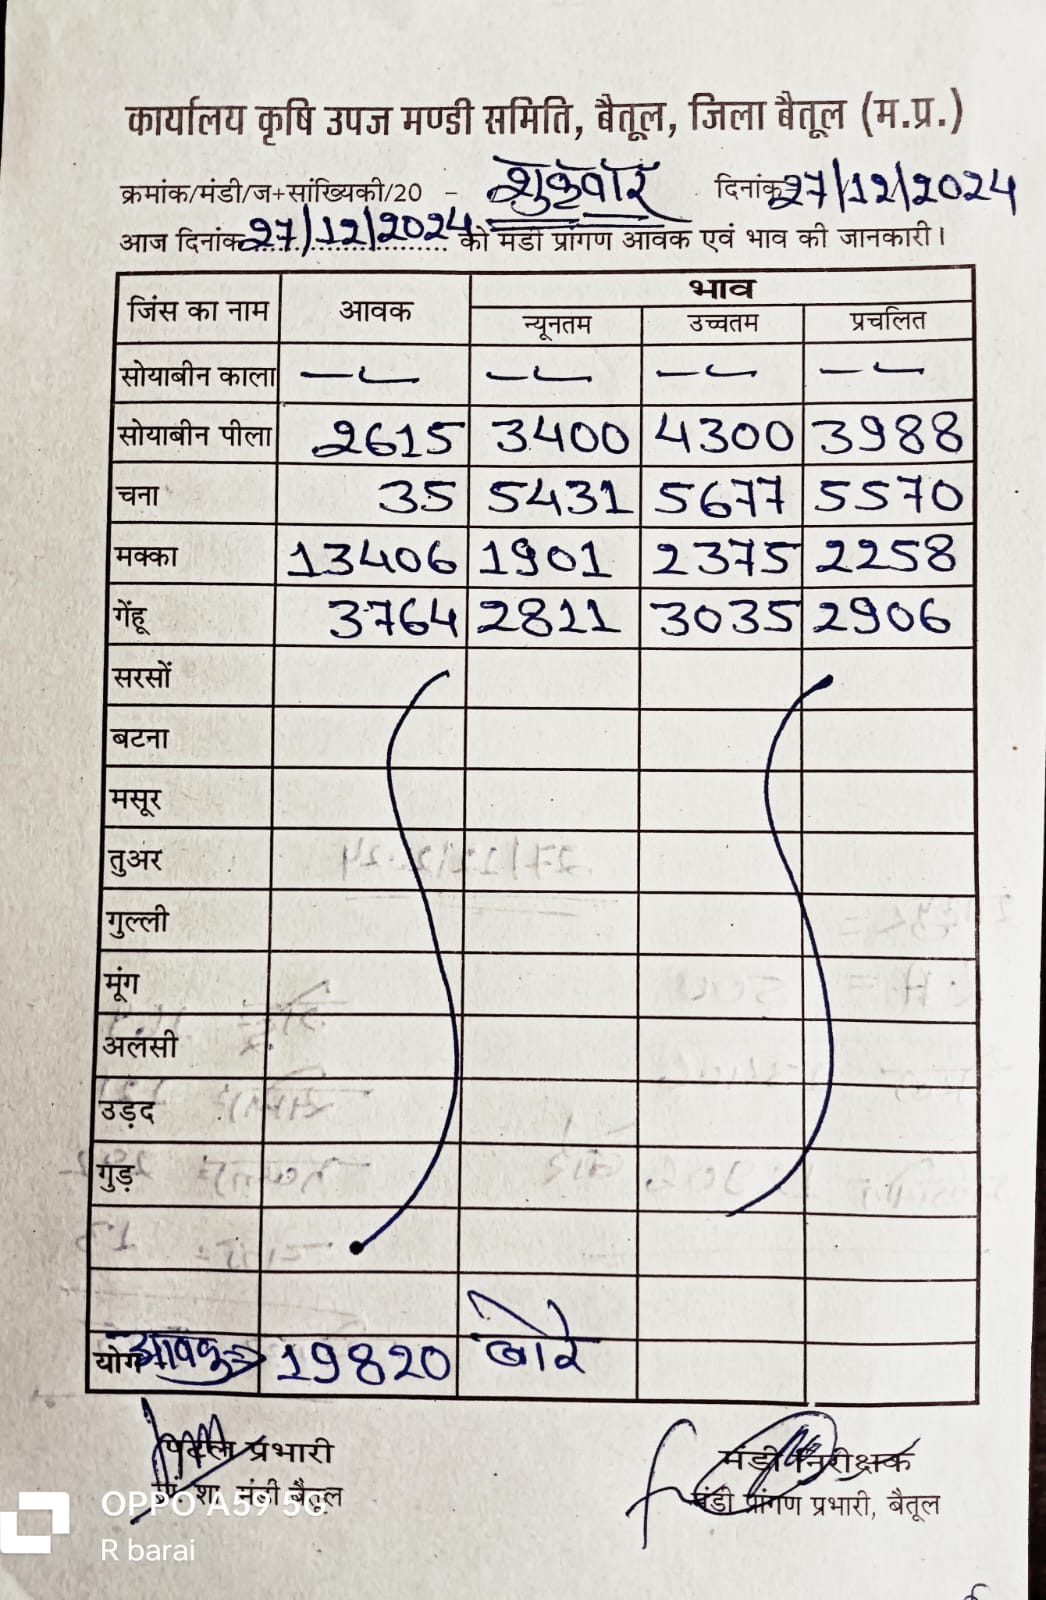 कार्यालय कृषि उपज मण्डी समिति, बैतूल, जिला बैतूल (म.प्र.)
क्रमांक/मंडी/ज+सांख्यिकी/20 - शुक्रवार दिनांक 27/12/2024
आज दिनांक 27/12/2024 को मंडी प्रांगण आवक एवं भाव की जानकारी।
जिंस का नाम आवक भाव
न्यूनतम उच्चतम प्रचलित
सोयाबीन काला
सोयाबीन पीला 2615 3400 4300 3988
चना 35 5431 5677 5570
मक्का 13406 1901 2375 2258
गेंहू 3764 2811 3035 2906
सरसों
बटना
मसूर
तुअर
गुल्ली
मूंग
अलसी
उड़द
गुड़
योग आवक 19820 बोरे
प्रभारी मंडी निरीक्षक
मंडी बैतूल मंडी प्रांगण प्रभारी, बैतूल
OPPO A59 5G
R barai